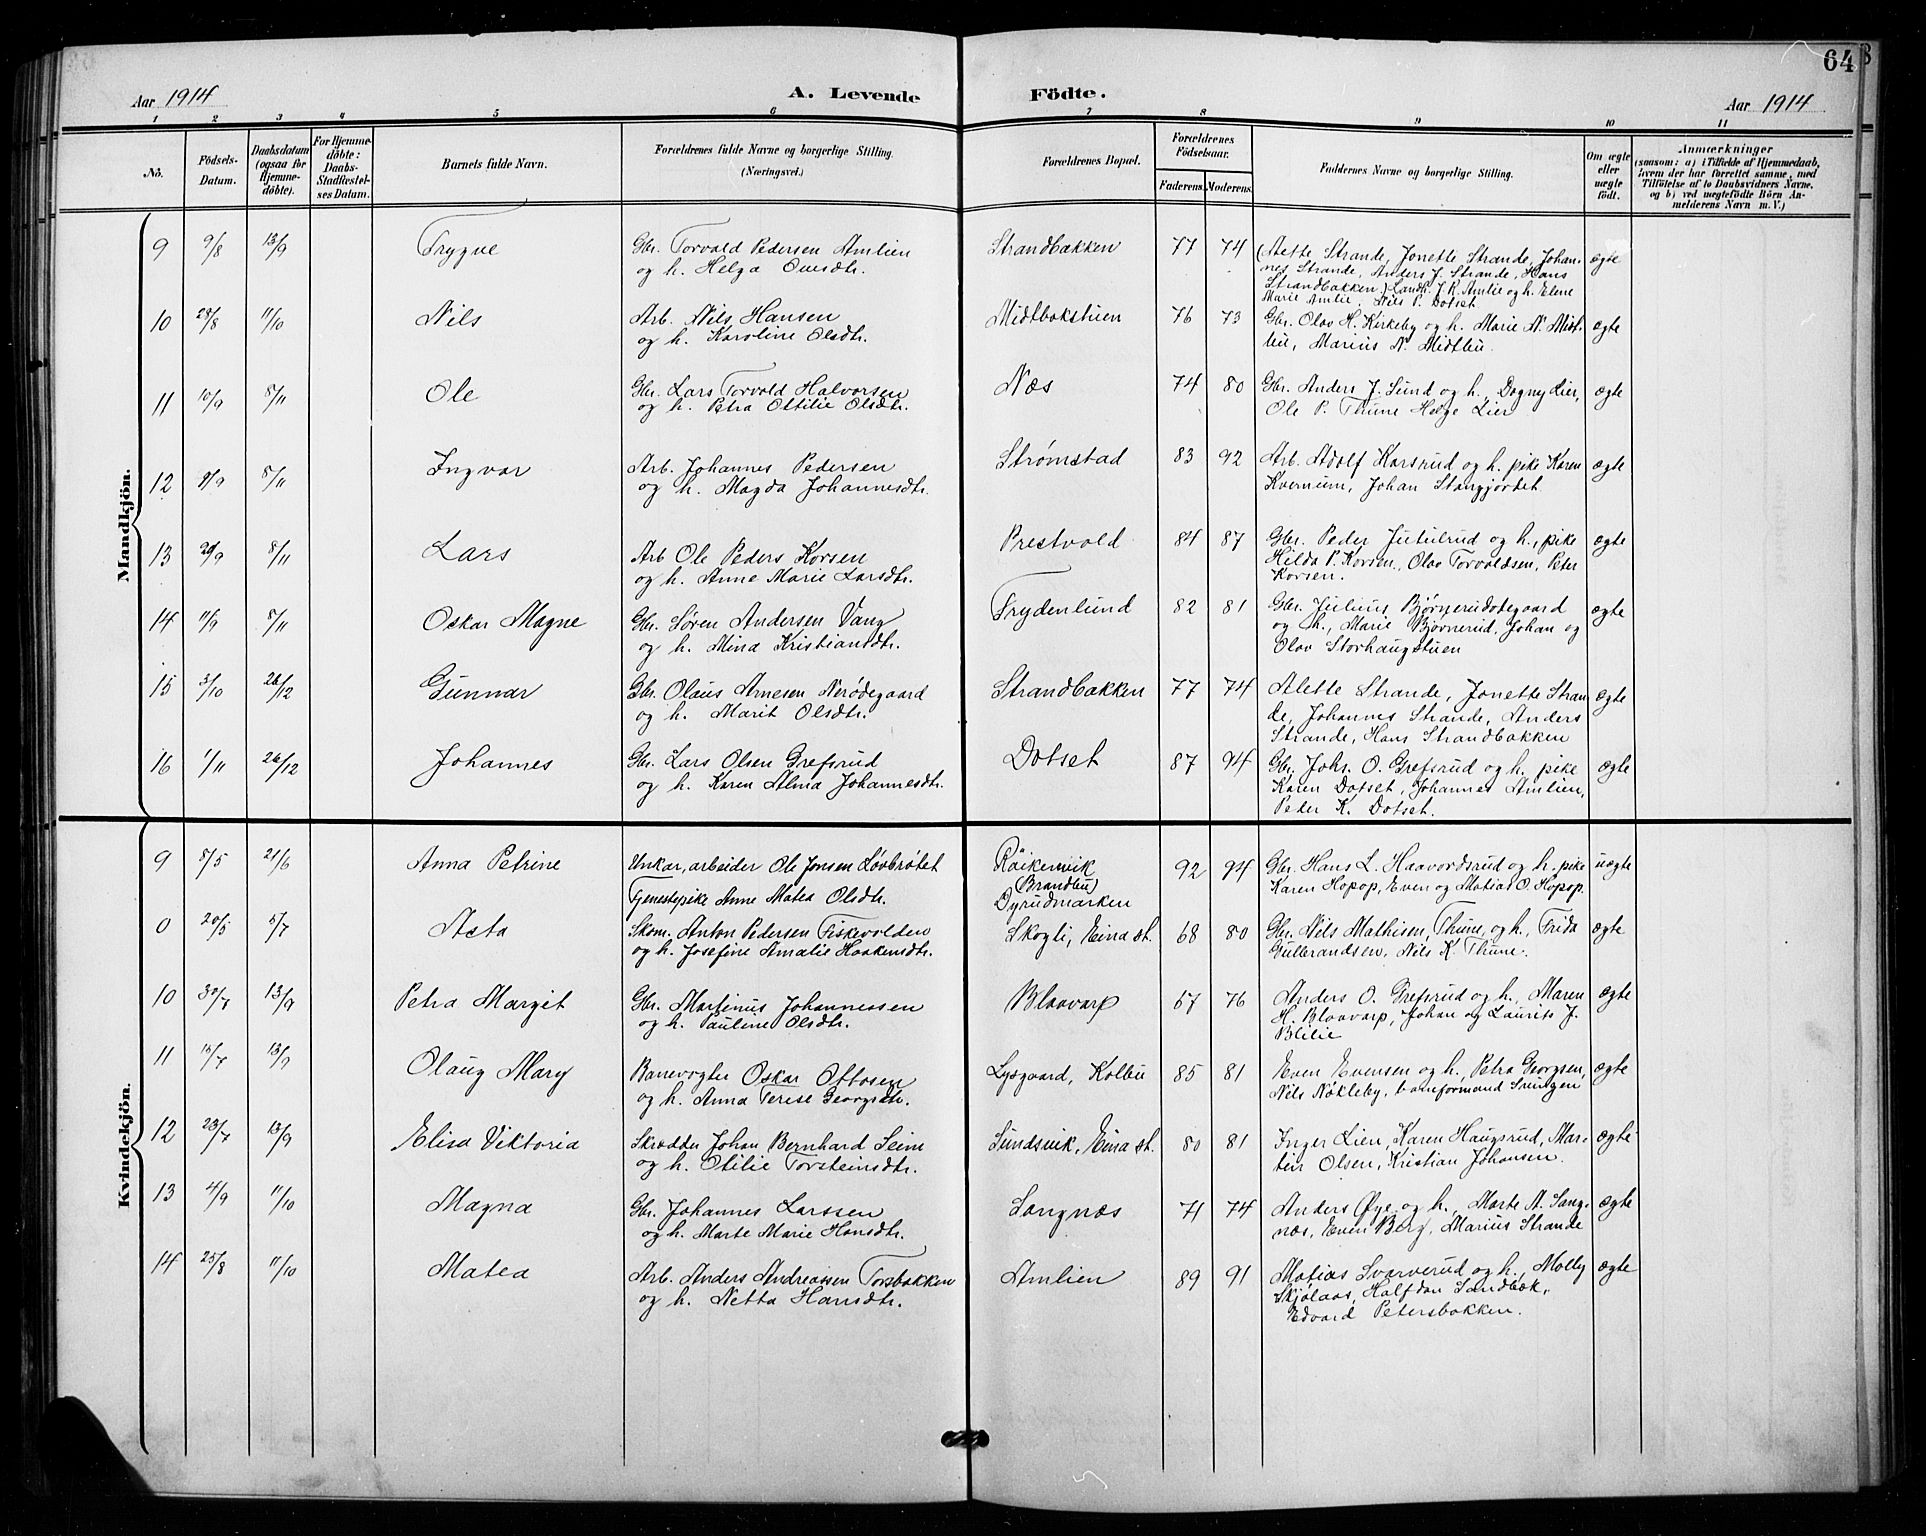 64
Aar 1914
A. Levende Födte.
Aar 1914
1 2 3 4 5 6 7 8 9 10 11
No.
Födsels-
Datum.
Daabsdatum
(ogsaa for
Hjemme-
döbte).
For Hjemme-
döbte:
Daabs-
Stadfæstel-
ses Datum.
Barnets fulde Navn.
Forældrenes fulde Navne og borgerlige Stilling.
(Næringsvei.)
Forældrenes Bopæl.
Forældrenes
Födselsaar.
Faderens. Moderens.
Faddernes Navne og borgerlige Stilling.
Om ægte
eller
uægte
födt.
Anmærkninger
(saasom: a) i Tilfælde af Hjemmedaab,
hvem der har forrettet samme, med
Tilföielse af to Daabsvidners Navne,
og b) ved uægtefödte Börn An-
melderens Navn m. V.)
Mandkjön.
9 9/8 13/9 Trygve Gbr. Torvald Pedersen Amlien Strandbakken 77 74 (Alette Strande, Jonette Strande, Johan- ægte
og h. Helga Ouesdtr. nes Strande, Anders J. Strande, Hans
Strandbakken) Landh. J. K. Amlie og h. Elene
Marie Amlie. Nils P. Dotset
10 28/8 11/10 Nils Arb. Nils Hansen Midtbakstuen 76 73 Gbr. Olav H. Kirkeby og h. Marie N. Midt- ægte
og h. Karoline Olsdtr. bu, Marius N. Midtbu.
11 10/9 8/11 Ole Gbr. Lars Torvald Halvorsen Næs 74 80 Gbr. Anders J. Sund og h., Dagny Lier, ægte
og h. Petra Ottilie Olsdtr. Ole P. Thune Helge Lier
12 9/9 8/11 Ingvar Arb. Johannes Pedersen Strømstad 83 92 Arb. Adolf Karsrud og h. pike Karen ægte
og h. Magda Johannesdtr. Kvernum, Johan Stangjordet
13 20/9 8/11 Lars Arb Ole Peders Korsen Prestvold 84 87 Gbr. Peder Jutulrud og h., pike ægte
og h. Anne Marie Larsdtr. Hilda P. Korsen, Olav Torvaldsen, Peter
Korsen.
14 11/9 8/11 Oskar Magne Gbr. Søren Andersen Vang Frydenlund 82 81 Gbr. Julius Bjørnerudødegaard ægte
og h. Mina Kristiansdtr. og h., Marie Bjørnerud, Johan og
Olav Storhaugstuen
15 3/10 26/12 Gunnar Gbr. Olaus Arnesen Nerødegaard Strandbakken 77 74 Alette Strande, Jonette Stran- ægte
og h. Marit Olsdtr. de, Johannes Strande, Anders
Strande, Hans Strandbakken
16 1/11 26/12 Johannes Gbr. Lars Olsen Grefsrud Dotset 87 94 Gbr. Johs. O. Grefsrud og h. pike ægte
og h. Karen Alma Johannesdtr. Karen Dotset, Johannes Amlien,
Peter K. Dotset.
Kvindekjön.
9 8/5 21/6 Anna Petrine Unkar, arbeider Ole Jonsen Løvbrøtet Røikenvik 92 94 Gbr. Hans L. Haavordsrud og h. pike uægte
(Brandbu) Karen Hopop, Even og Matias O. Hopop.
Tjenestepike Anne Matea Olsdtr. Dyrudmarken
0 20/5 5/7 Asta Skom. Anton Pedersen Fiskevolden Skogli, Eina st. 68 80 Gbr. Nils Mathisen Thune, og h., Frida ægte
og h. Josefine Amalie Haakensdtr. Gulbrandsen, Nils K. Thune.
10 30/7 13/9 Petra Margit Gbr. Martinus Johannessen Blaavarp 67 76 Anders O. Grefsrud og h., Maren ægte
og h. Pauline Olsdtr. H. Blaavarp, Johan og Laurits J.
Blilie
11 15/7 13/9 Olaug Mary Banevogter Oskar Ottosen Lysgaard, Kolbu 85 81 Even Evensen og h., Petra Georgsen, ægte
og h. Anna Terese Georgsdtr. Nils Nøkleby, banformand Svingen
12 23/7 13/9 Elisa Viktoria Skrædder Johan Bernhard Seim Sundsvik, Eina st. 80 81 Inger Lien, Karen Haugsrud, Mar- ægte
og h. Otilie Torsteinsdtr. tin Olsen, Kristian Johansen.
13 4/9 11/10 Magna Gbr. Johannes Larssen Langnæs 71 74 Anders Øye og h., Marte A. Lang- ægte
og h. Marte Marie Hansdtr. næs, Even Berg, Marius Strande
14 25/8 11/10 Matea Arb. Anders Andreassen Torsbakken Amlien 89 91 Matias Svarverud og h., Molly ægte
og h. Netta Hansdtr. Skjølaas, Halfdan Sandbæk,
Edvard Petersbakken.